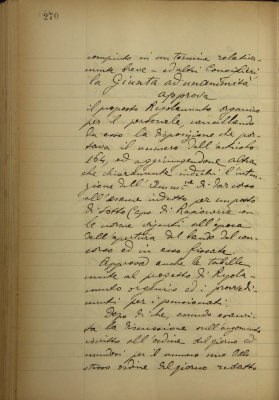 270
compiuto in un termine relativa-
mente breve - ed altri Consiglieri
la Giunta ad unanimità
approva
il proposto Regolamento organico
per il personale, cancellando
da esso la disposizione che por-
tava il numero dell'articolo
164, ed aggiungendone altra
che chiaramente indichi l'inten-
zione dell'Amm.ne di dar corso
all'esame indetto per un posto
di Sotto Capo di Ragioneria con
le norme vigenti all'epoca
dell'apertura del bando del con-
corso ed in esso fissate.
Approva anche le tabelle
mente al progetto di Regola-
mento organico ed i provvedi-
menti per i pensionati.
Dopo di che, essendo esauri-
ta la discussione sull'argomento
iscritto all'ordine del giorno ed
numeri per il numero uno dello
stesso ordine del giorno redatto